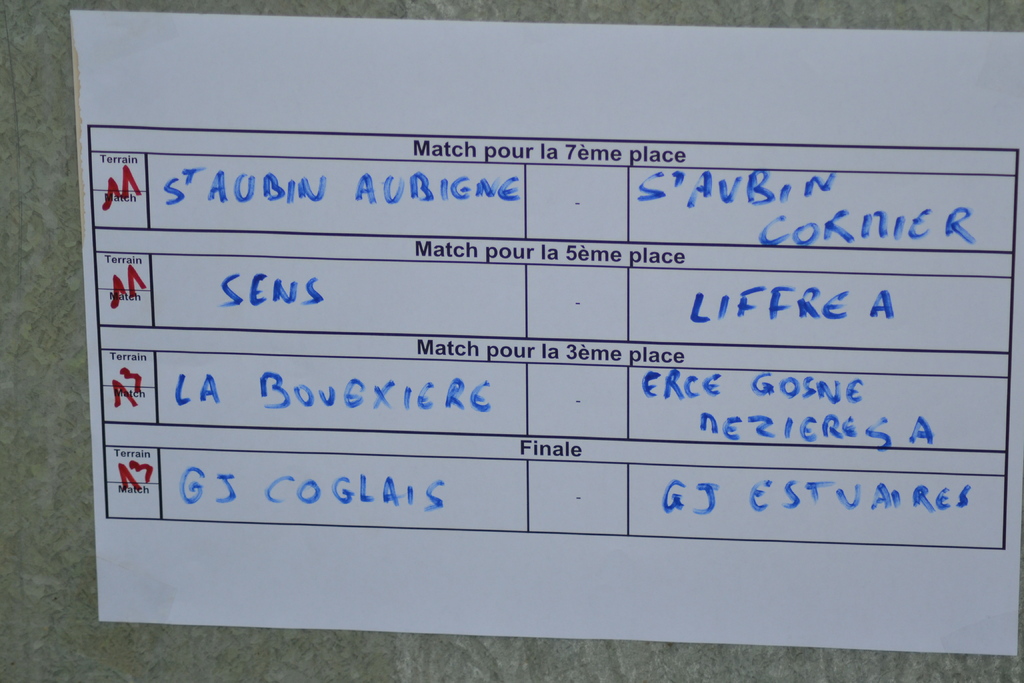 Match pour la 7ème place
Terrain
11
Match
ST AUBIN AUBIGNE - ST AUBIN
CORMIER
Match pour la 5ème place
Terrain
11
Match
SENS - LIFFRE A
Match pour la 3ème place
Terrain
13
Match
LA BOUEXIERE - ERCE GOSNE
MEZIERES A
Finale
Terrain
13
Match
GJ COGLAIS - GJ ESTUAIRES